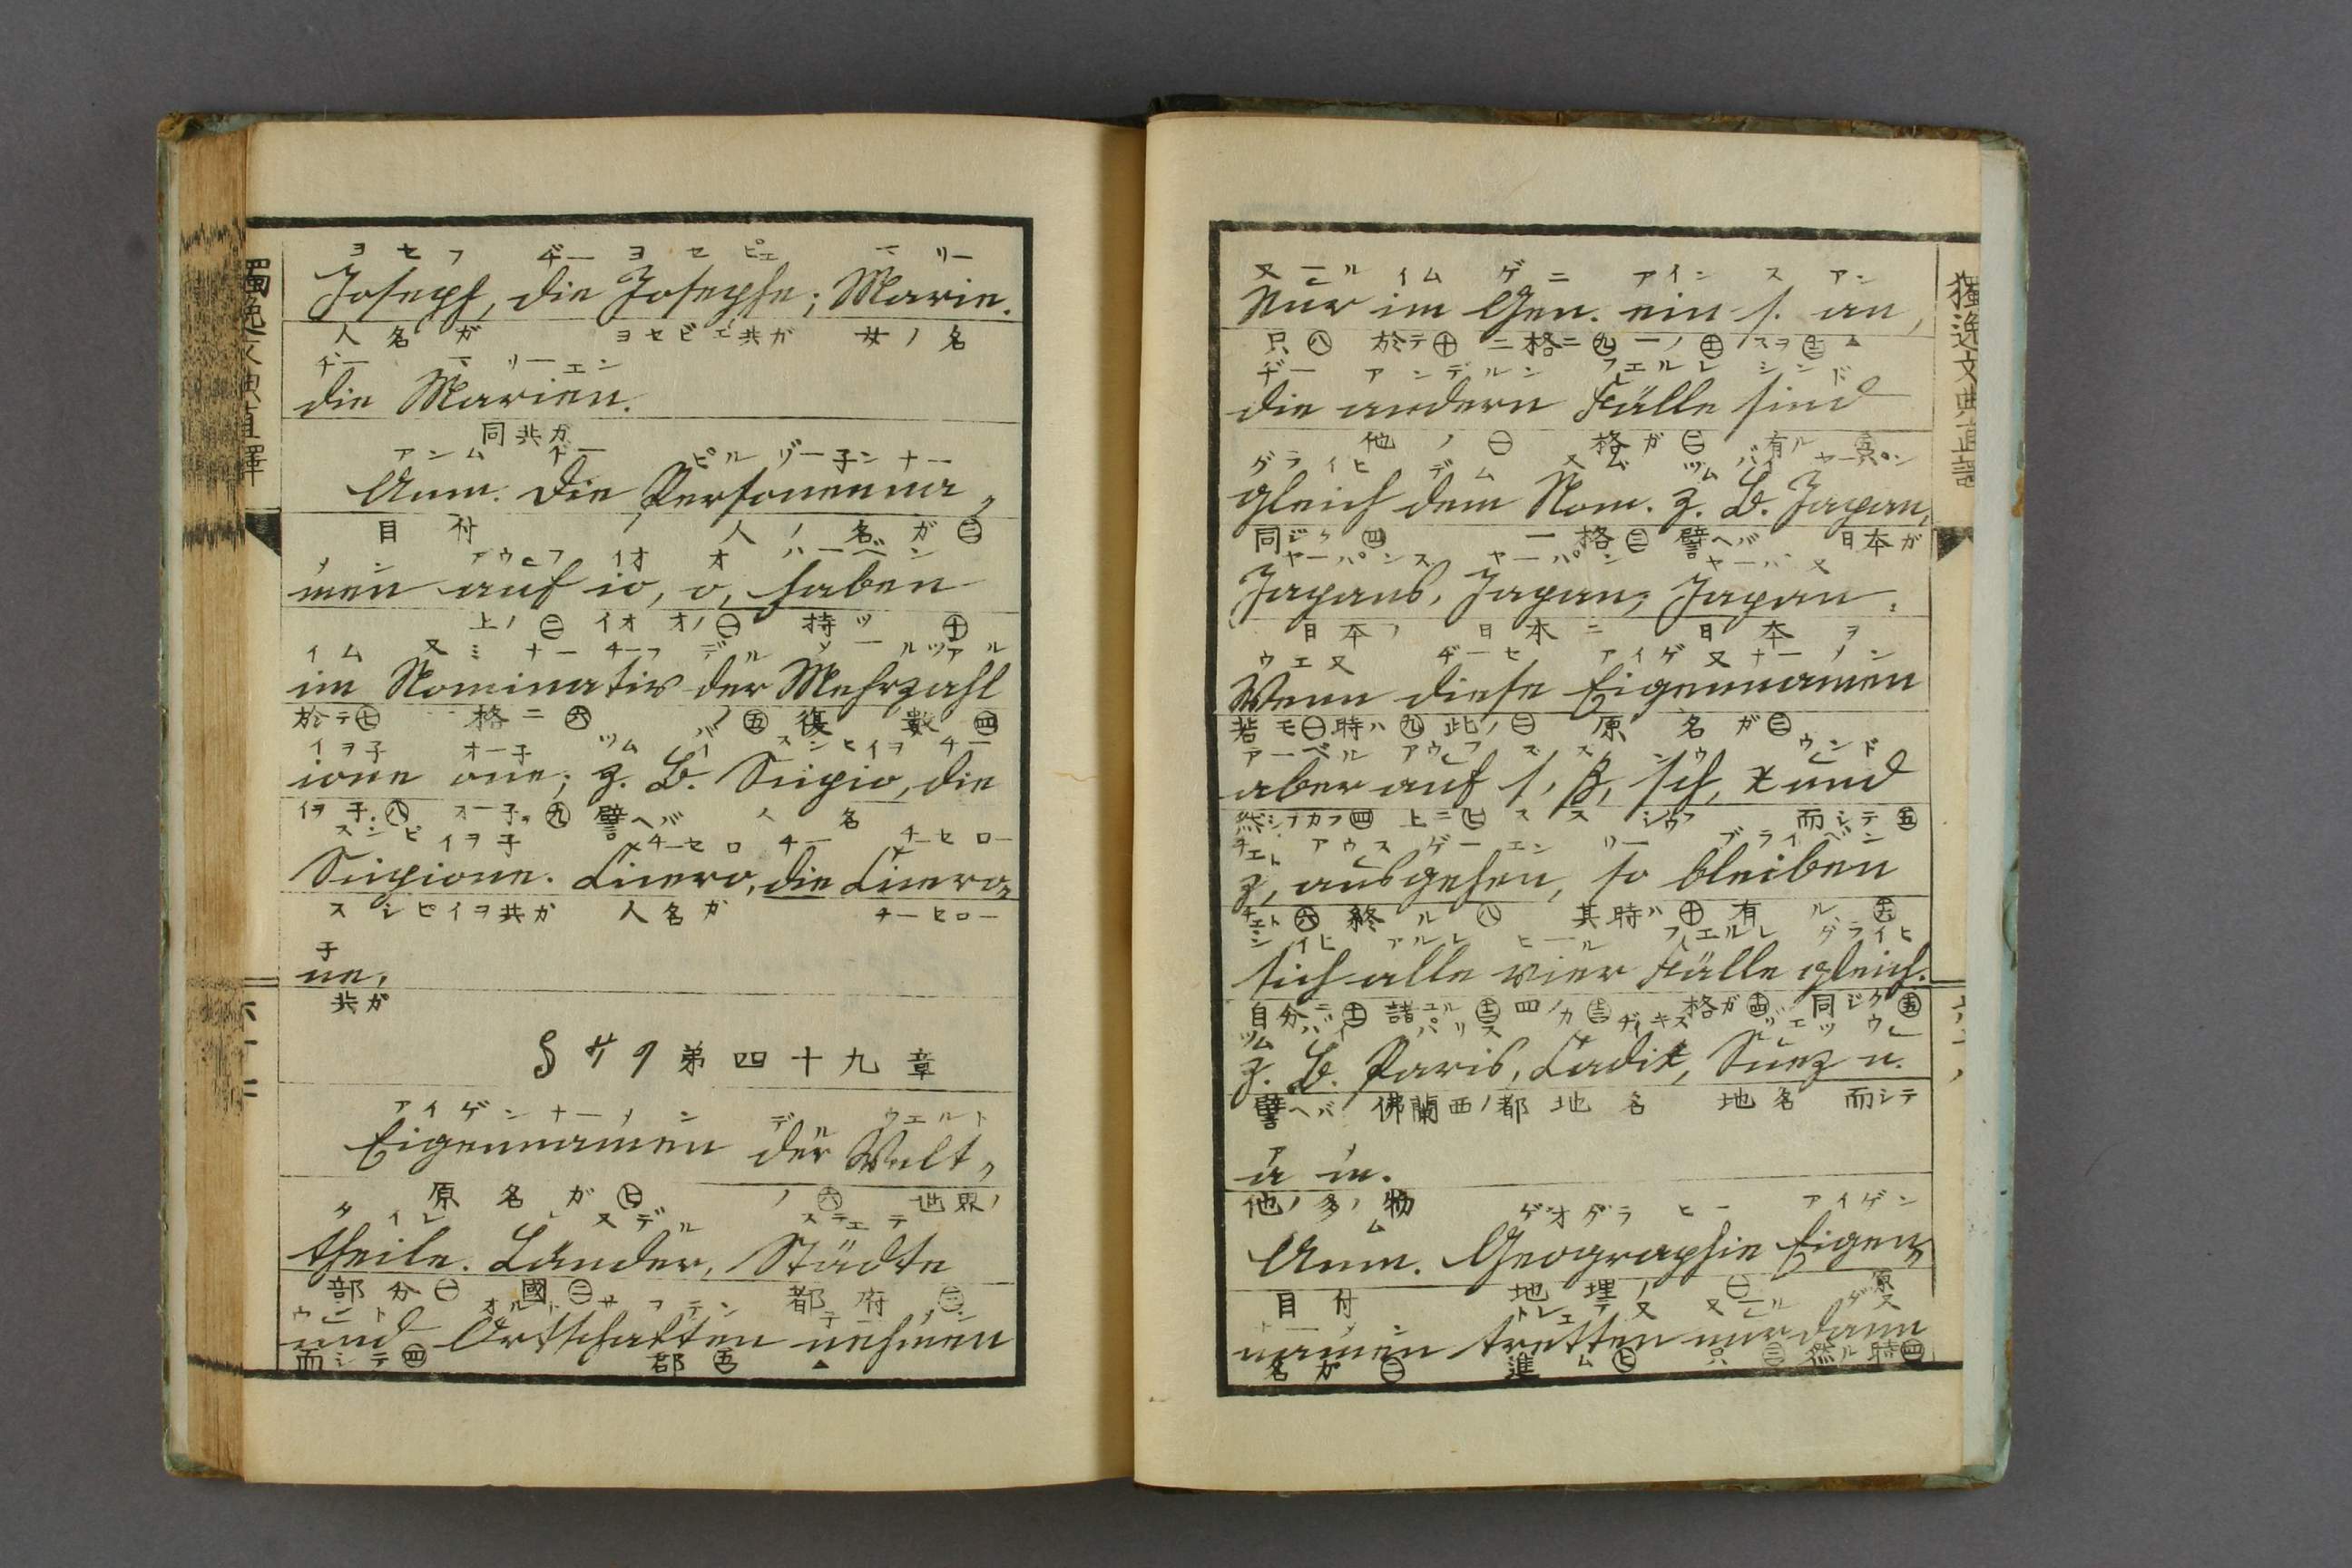 ヨセフ ヂー ヨセピエ マリー
Joseph, die Josephe; Marie.
人名ガ ヨセピエ共ガ 女ノ名
ヂー マリーエン
die Marien.
同共ガ
アンム ヂー ピルゾー子ンナー
Anm. Die Personenna-
目付 人ノ名ガ㊂
メン アウフ イオ オ ハーベン
men auf io, o, haben
上ノ㊁ イオ オノ㊀ 持ツ ㊉
イム ヌミナーチーフ デル メールツアル
im Nominativ der Mehrzahl
於テ㊆ 格ニ㊅ ノ㊄ 復数㊃
イヲ子 オー子 ツム バイ スシピイヲ チー
ione one; z. B. Scipio, die
イヲ子㊇ オー子ヲ㊈ 譬ヘバ 人名
スシピイヲ子 チーセロ チー チーセロー
Scipione. Cicero, die Cicero-
スシピイヲ共ガ 人名ガ チーセロー
子
ne.
共ガ
§ 49 第四十九章
アイゲンナーメン デル ウエルト
Eigennamen der Welt-
原名ガ㊆ ノ㊅ 世界ノ
タイレ レヌデル ステエテ
theile. Länder, Städte
部分㊀ 國㊁ 都府㊂
ウント オルトサフテン 子ーメン
und Ortschaften nehmen
而シテ㊃ 郡㊄ ▲
獨逸文典直譯
ヌール イム ゲニ アイン ス アン
nur im Gen. ein s. an,
只㊇ 於テ㊉ 二格ニ㊈ 一ノ スヲ ▲
ヂー アンデルン フエルレ シンド
die andern Fälle sind
他ノ㊀ 格ガ㊁ 有ル
グライヒ デム ヌム ツム バイ ヤーパン
gleich dem Nom. z. B. Japan,
同ジク㊃ 一格㊂ 譬ヘバ 日本ガ
ヤーパンス ヤーパン ヤーパヌ
Japans, Japan; Japan.
日本ノ 日本ニ 日本ヲ
ウエヌ ヂーセ アイゲヌナーメン
Wenn diese Eigennamen
若モ㊀時ハ㊈ 此ノ㊁ 原名ガ㊂
アーベル アウフ ス ス シウ ウンド
aber auf s, ß, sch, x und
然シナカラ㊃ 上ニ㊆ ス ス シウ 而シテ㊄
チエト アウスゲーエン ソー ブライベン
z, ausgehen, so bleiben
チエト㊅ 終ル㊇ 其時ハ㊉ 有ル
シイヒ アルレ ヒール フエルレ グライヒ
sich alle vier Fälle gleich.
自分ニ 諸ユル 四ノ 格ガ 同ジク
ツム バイ パリス カヂイキス ズエツ ウ
z. B. Paris, Cadix, Suez u.
譬ヘバ 佛蘭西ノ都 地名 地名 而シテ
ア メ
a m.
他ノ多ノ物
ム ゲオグラヒー アイゲン
Anm. Geographie Eigen-
目付 地理ノ㊀ 原
ナーメン トレエテヌ ヌール ダヌ
namen tretten nur dann
名ガ㊁ 進ム㊆ 只㊂ 然ル時㊃
獨逸文典直譯